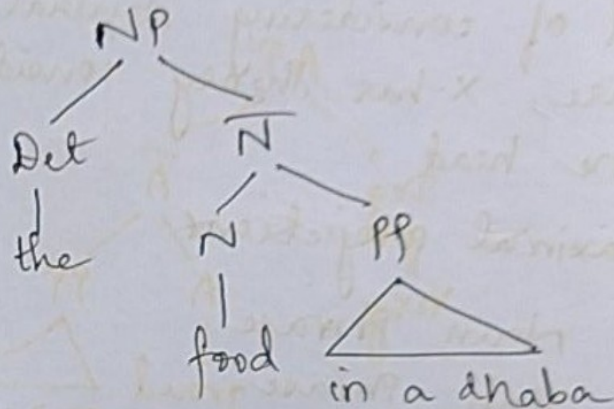 NP
Det N̅
the N PP
food in a dhaba